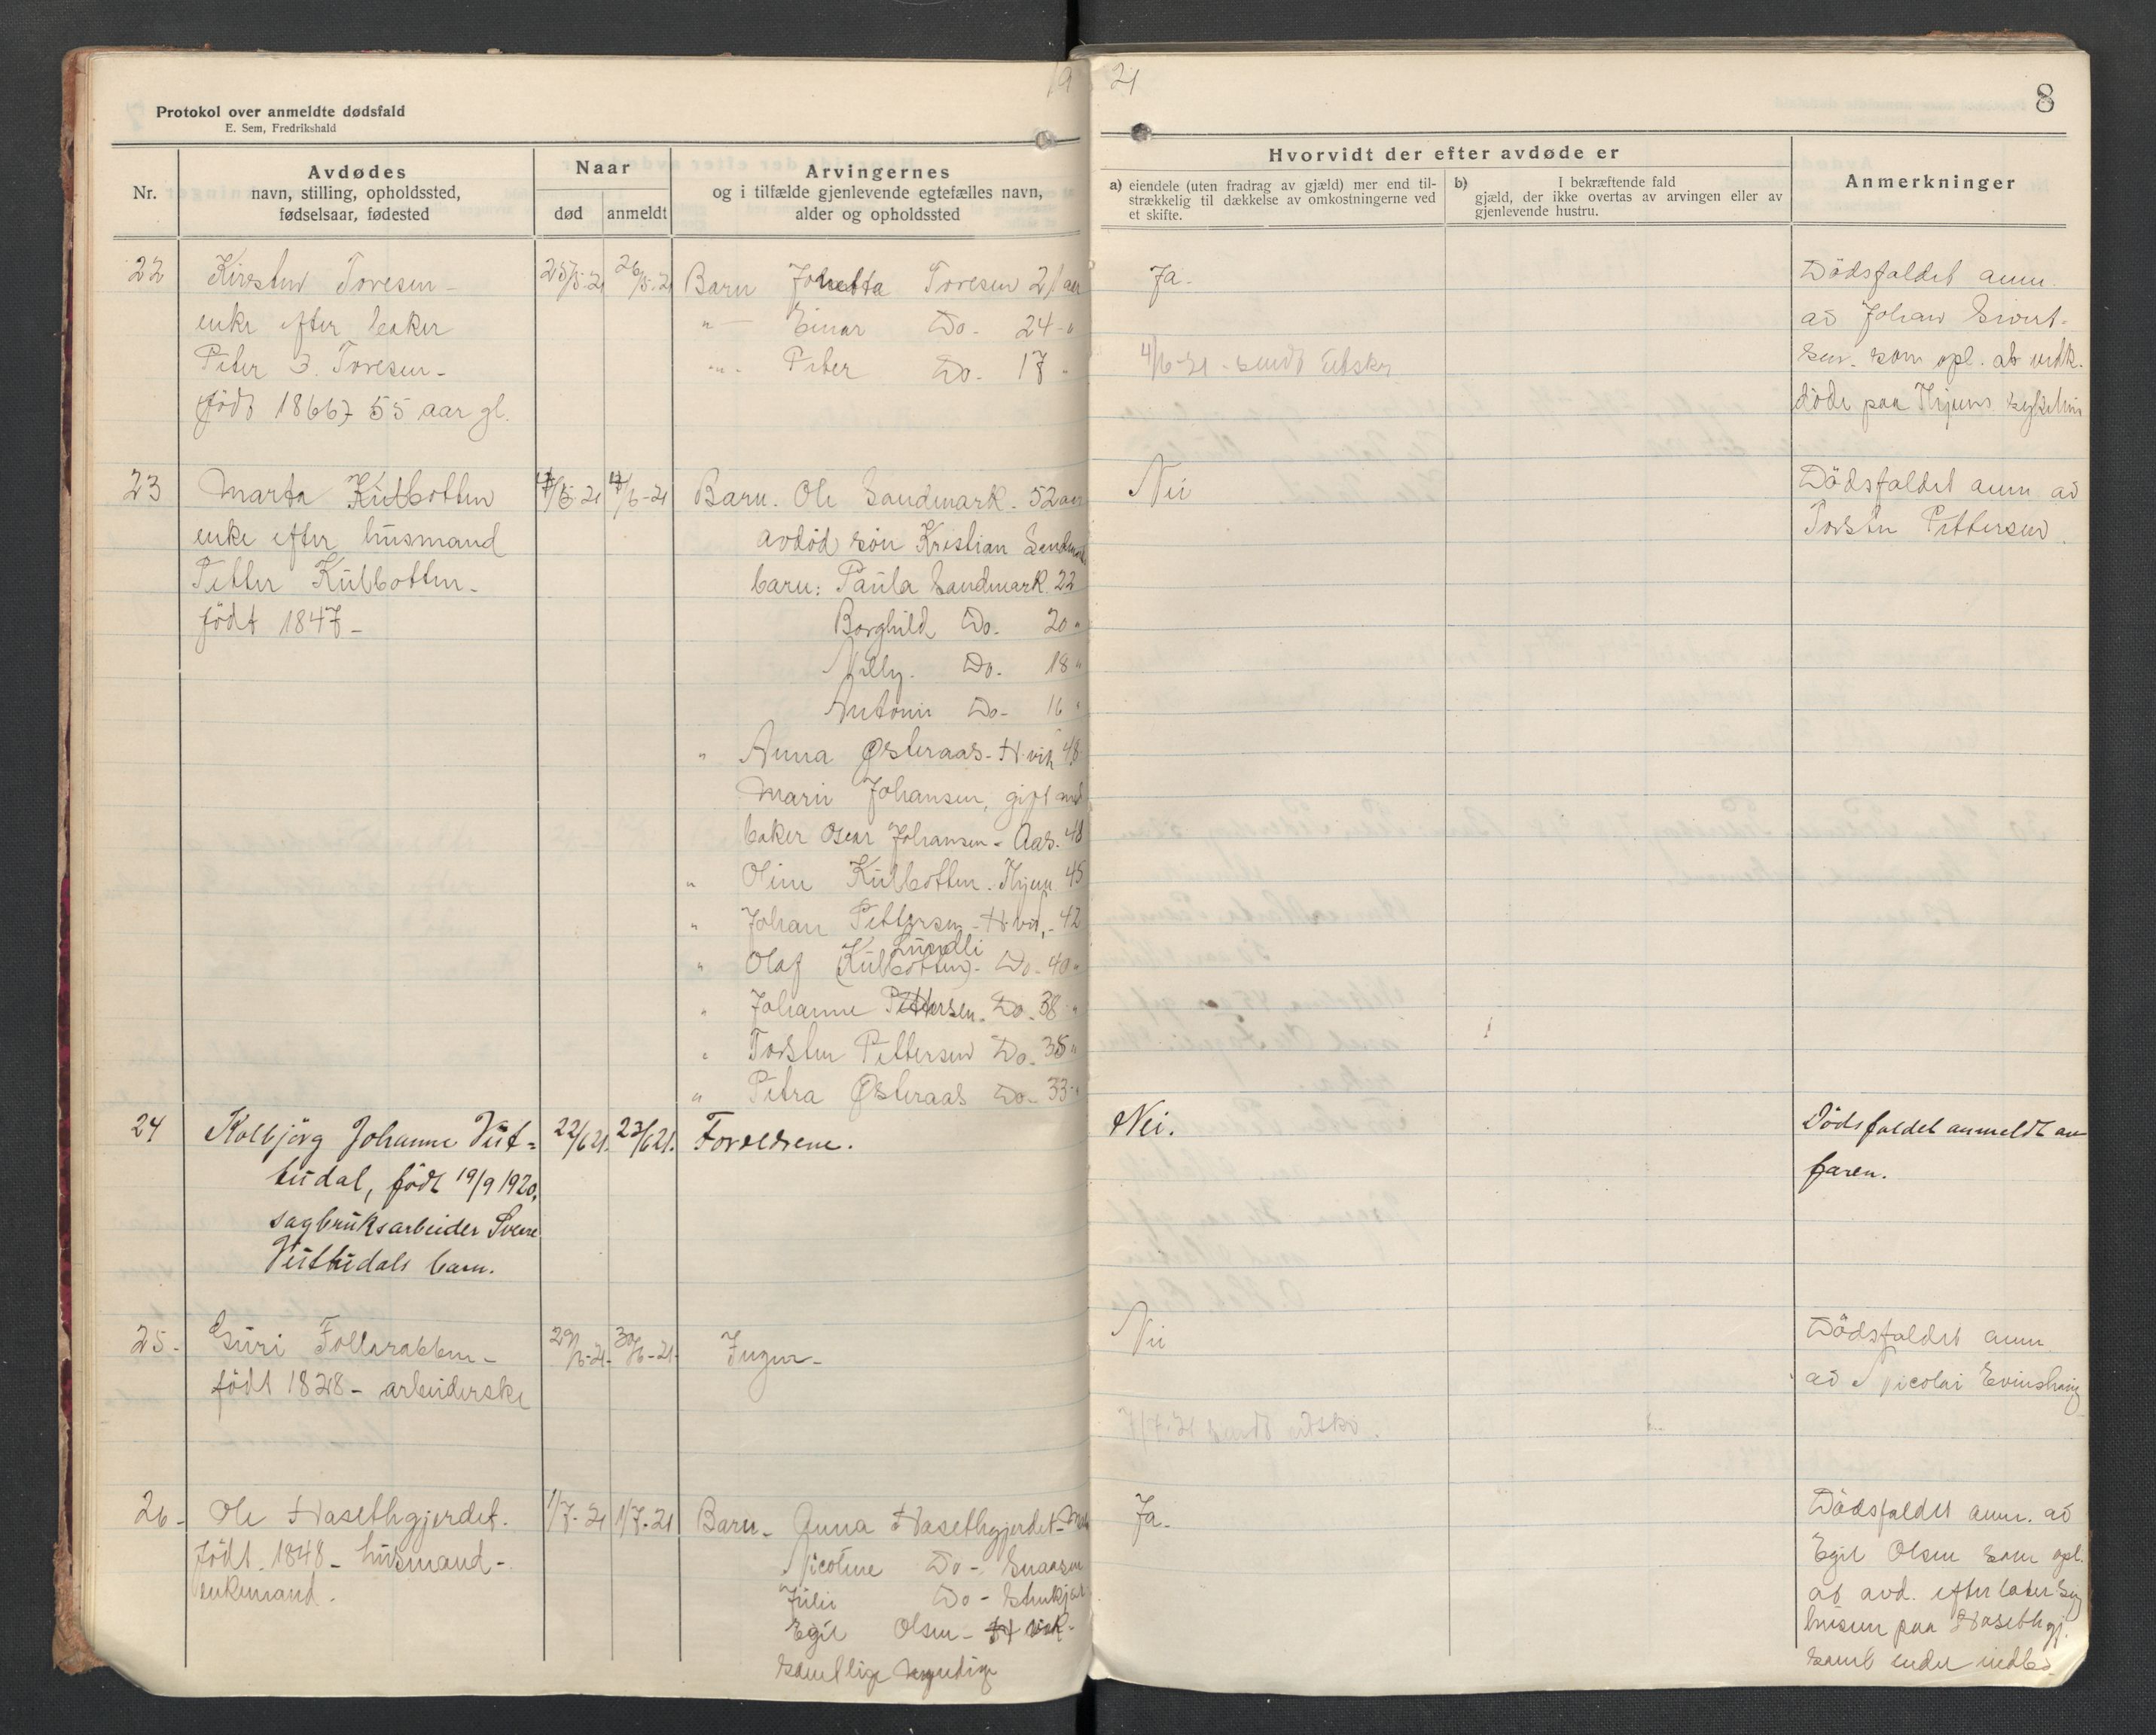 19 21
8
Protokol over anmeldte dødsfald
E. Sem, Fredrikshald
Nr.
Avdødes
navn, stilling, opholdssted,
fødselsaar, fødested
Naar
død
anmeldt
Arvingernes
og i tilfælde gjenlevende egtefælles navn,
alder og opholdssted
Hvorvidt der efter avdøde er
a) eiendele (uten fradrag av gjæld) mer end til-
strækkelig til dækkelse av omkostningerne ved
et skifte.
b) I bekræftende fald
gjæld, der ikke overtas av arvingen eller av
gjenlevende hustru.
Anmerkninger
22
Kirsten Toresen -
enke efter baker
Peter J. Toresen -
født 1866 55 aar gl.
25/5-21
26/5-21
Barn Johetta Toresen 21 aar
"— Einar Do. 24 "
"— Peter Do. 17 "
Ja.
4/6-21 - sendt
Dödsfaldet anm.
av Johan Sivert-
sen. som opl. at vedk.
döde paa
23
Marta Külbotten
enke efter husmand
Petter Külbotten -
født 1847 -
4/6-21
4/6-21
Barn. Ole Sandmark. 52 aar
avdöd sön Kristian Sandmark
barn: Paula Sandmark 22
Borghild Do. 20 "
Nelly. Do. 18 "
Antoni Do- 16 "
" Anna Østeraas - H.vik 48
Marie Johansen, gift med
baker Oscar Johansen - Aas. 48
" Oline Külbotten. 45
" Johan Pettersen - H.vik, - 42
Lundli
" Olaf (Külbotten) - Do - 40 "
" Johanne Pettersen - Do. 38 "
" Torsten Pettersen Do. 35 "
" Petra Østeraas Do - 33 "
Nei
Dödsfaldet anm av
Torsten Pettersen.
24
Kolbjörg Johanne
født 19/9 1920,
sagbruksarbeider Sverre
barn.
22/6 21.
23/6 21.
Forældrene.
Nei.
Dödsfaldet anmeldt av
faren.
25 -
Guri Follarabben -
født 1828 - arbeiderske
29/6-21-
30/6-21-
Ingen -
Nei
7/7-21 sendt
Dödsfaldet anm.
av Nicolai
26 -
Ole Hasethgjerdet.
født. 1848 - husmand -
enkemand.
1/7-21
1/7-21
Barn - Anna Hasethgjerdet -
Nicoline Do - Snaasen
Julie Do - Stenkjær
Egil Olsen - H vik -
samtlige myndige
Ja -
Dödsfaldet anm. av
Egil Olsen som opl.
at avd. efterlater
husene paa Hasethgj.
samt endel indbo